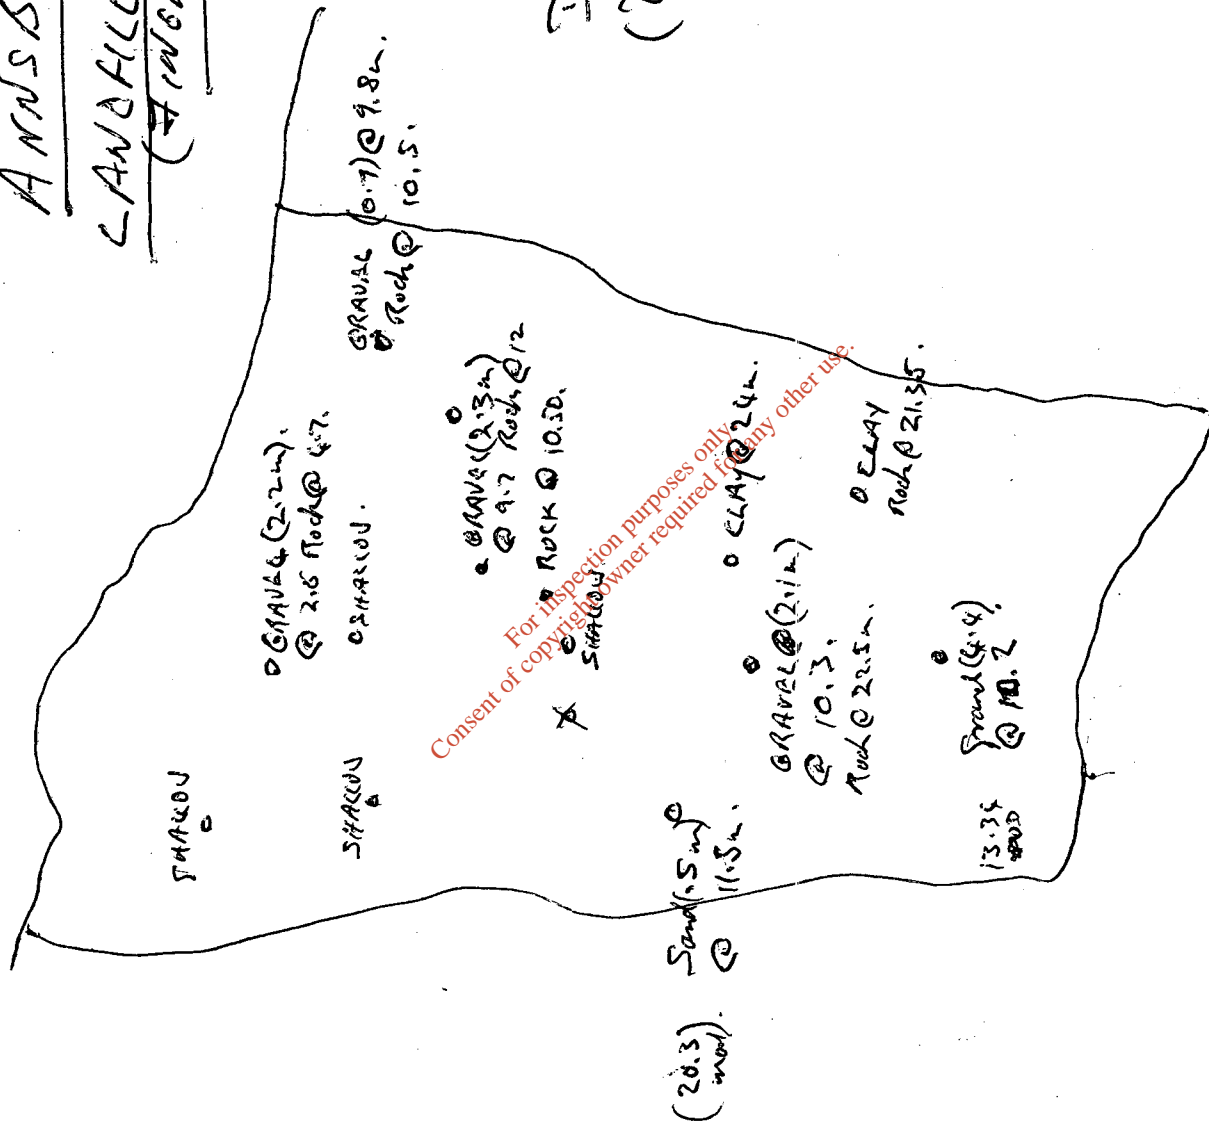 ANNSB
LANDFILL
(FINGA
SHALLOW
SHALLOW
GRAVEL (2.2m).
@ 2.6 Rock @ 4.7.
SHALLOW.
GRAVEL (0.7) @ 9.8m.
Rock @ 10.5.
GRAVEL (2.3m)
@ 9.7 Rock @ 12
ROCK @ 10.50.
SHALLOW.
X
CLAY @ 24m.
CLAY
Rock @ 21.35.
GRAVEL @ (2.1m)
@ 10.3.
Rock @ 22.5m.
Sand (1.5m)
@ 11.5m.
(20.3)
Gravel (4.4)
@ 10.2
13.34
For inspection purposes only.
Consent of copyright owner required for any other use.